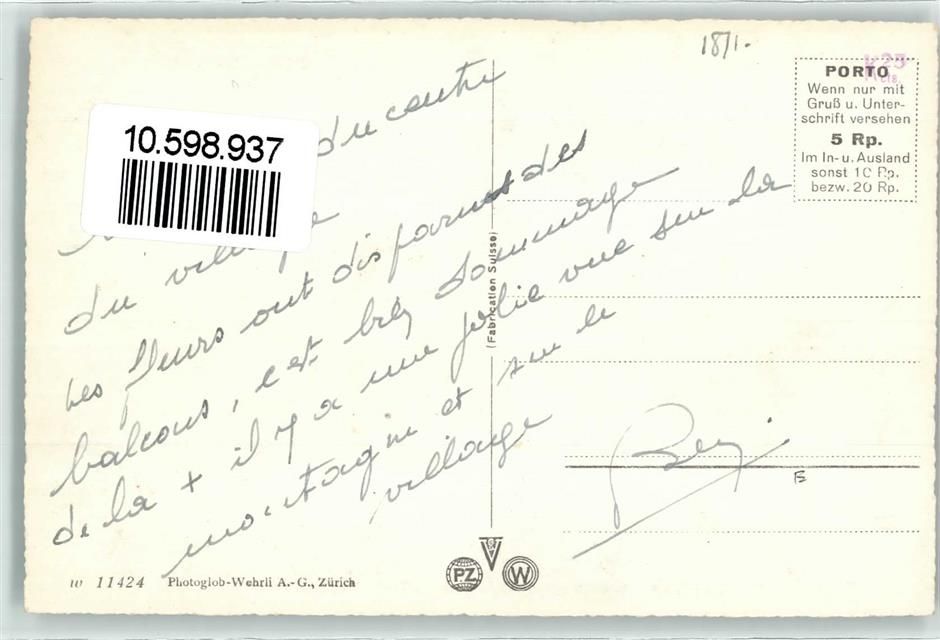 18/1.
K 25
cts.
PORTO
Wenn nur mit
Gruß u. Unter-
schrift versehen
5 Rp.
Im In- u. Ausland
sonst 10 Rp.
bezw. 20 Rp.
10.598.937
du centre
du village
Les fleurs ont disparues des
balcons, c'est très dommage
de la + il y a une jolie vue sur la
montagne et sur le
village
(Fabrication Suisse)
E
W 11424 Photoglob-Wehrli A.-G., Zürich
PZ
W